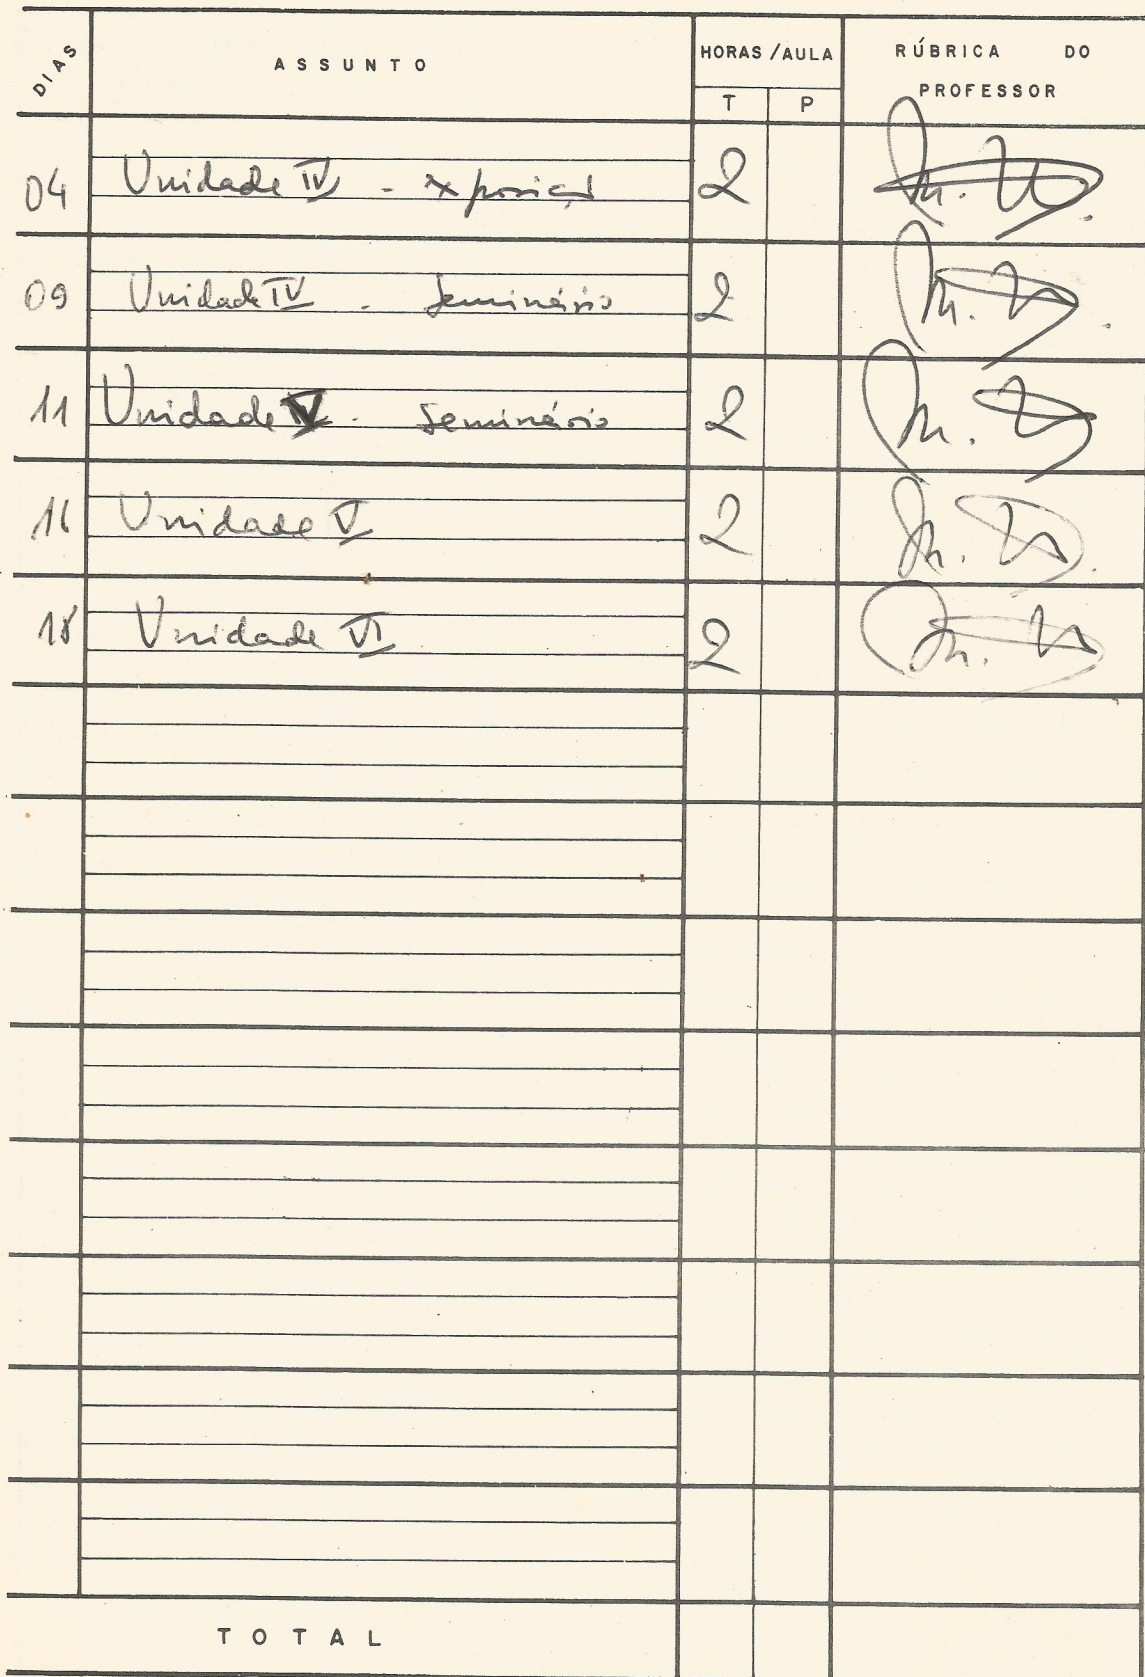 DIAS ASSUNTO HORAS/AULA RÚBRICA DO
T P PROFESSOR
04 Unidade IV - exposição 2
09 Unidade IV - Seminário 2
11 Unidade V - Seminário 2
16 Unidade V 2
18 Unidade VI 2
TOTAL